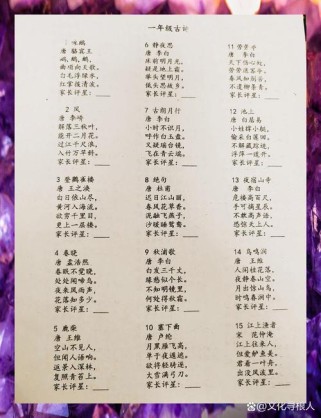 一年级古诗
1 咏鹅
唐 骆宾王
鹅，鹅，鹅，
曲项向天歌。
白毛浮绿水，
红掌拨清波。
家长评星：
2 风
唐 李峤
解落三秋叶，
能开二月花。
过江千尺浪，
入竹万竿斜。
家长评星：
3 登鹳雀楼
唐 王之涣
白日依山尽，
黄河入海流。
欲穷千里目，
更上一层楼。
家长评星：
4 春晓
唐 孟浩然
春眠不觉晓，
处处闻啼鸟。
夜来风雨声，
花落知多少。
家长评星：
5 鹿柴
唐 王维
空山不见人，
但闻人语响。
返景入深林，
复照青苔上。
家长评星：
6 静夜思
唐 李白
床前明月光，
疑是地上霜。
举头望明月，
低头思故乡。
家长评星：
7 古朗月行
唐 李白
小时不识月，
呼作白玉盘。
又疑瑶台镜，
飞在青云端。
家长评星：
8 绝句
唐 杜甫
迟日江山丽，
春风花草香。
泥融飞燕子，
沙暖睡鸳鸯。
家长评星：
9 秋浦歌
唐 李白
白发三千丈，
缘愁似个长。
不知明镜里，
何处得秋霜。
家长评星：
10 塞下曲
唐 卢纶
月黑雁飞高，
单于夜遁逃。
欲将轻骑逐，
大雪满弓刀。
家长评星：
11 劳劳亭
唐 李白
天下伤心处，
劳劳送客亭。
春风知别苦，
不遣柳条青。
家长评星：
12 池上
唐 白居易
小娃撑小艇，
偷采白莲回。
不解藏踪迹，
浮萍一道开。
家长评星：
13 夜宿山寺
唐 李白
危楼高百尺，
手可摘星辰。
不敢高声语，
恐惊天上人。
家长评星：
14 鸟鸣涧
唐 王维
人闲桂花落，
夜静春山空。
月出惊山鸟，
时鸣春涧中。
家长评星：
15 江上渔者
宋 范仲淹
江上往来人，
但爱鲈鱼美。
君看一叶舟，
出没风波里。
家长评星：
@文化寻根人